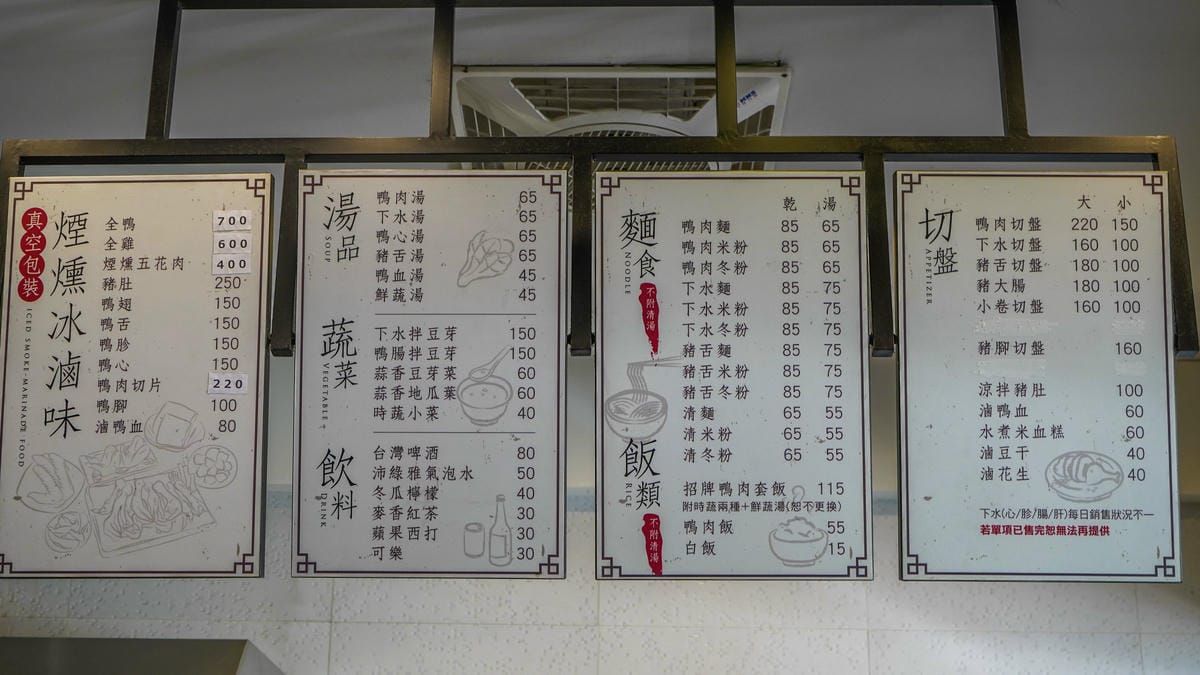 真空包裝
煙燻冰滷味
ICED SMOKE-MARINADE FOOD
全鴨 700
全雞 600
煙燻五花肉 400
豬肚 250
鴨翅 150
鴨舌 150
鴨胗 150
鴨心 150
鴨肉切片 220
鴨腳 100
滷鴨血 80
湯品
SOUP
鴨肉湯 65
下水湯 65
鴨心湯 65
豬舌湯 65
鴨血湯 45
鮮蔬湯 45
蔬菜
VEGETABLE
下水拌豆芽 150
鴨腸拌豆芽 150
蒜香豆芽菜 60
蒜香地瓜葉 60
時蔬小菜 40
飲料
DRINK
台灣啤酒 80
沛綠雅氣泡水 50
冬瓜檸檬 40
麥香紅茶 30
蘋果西打 30
可樂 30
麵食
NOODLE
不附清湯
乾 湯
鴨肉麵 85 65
鴨肉米粉 85 65
鴨肉冬粉 85 65
下水麵 85 75
下水米粉 85 75
下水冬粉 85 75
豬舌麵 85 75
豬舌米粉 85 75
豬舌冬粉 85 75
清麵 65 55
清米粉 65 55
清冬粉 65 55
飯類
RICE
不附清湯
招牌鴨肉套飯 115
附時蔬兩種+鮮蔬湯(恕不更換)
鴨肉飯 55
白飯 15
切盤
APPETIZER
大 小
鴨肉切盤 220 150
下水切盤 160 100
豬舌切盤 180 100
豬大腸 180 100
小卷切盤 160 100
豬腳切盤 160
涼拌豬肚 100
滷鴨血 60
水煮米血糕 60
滷豆干 40
滷花生 40
下水(心/胗/腸/肝)每日銷售狀況不一
若單項已售完恕無法再提供